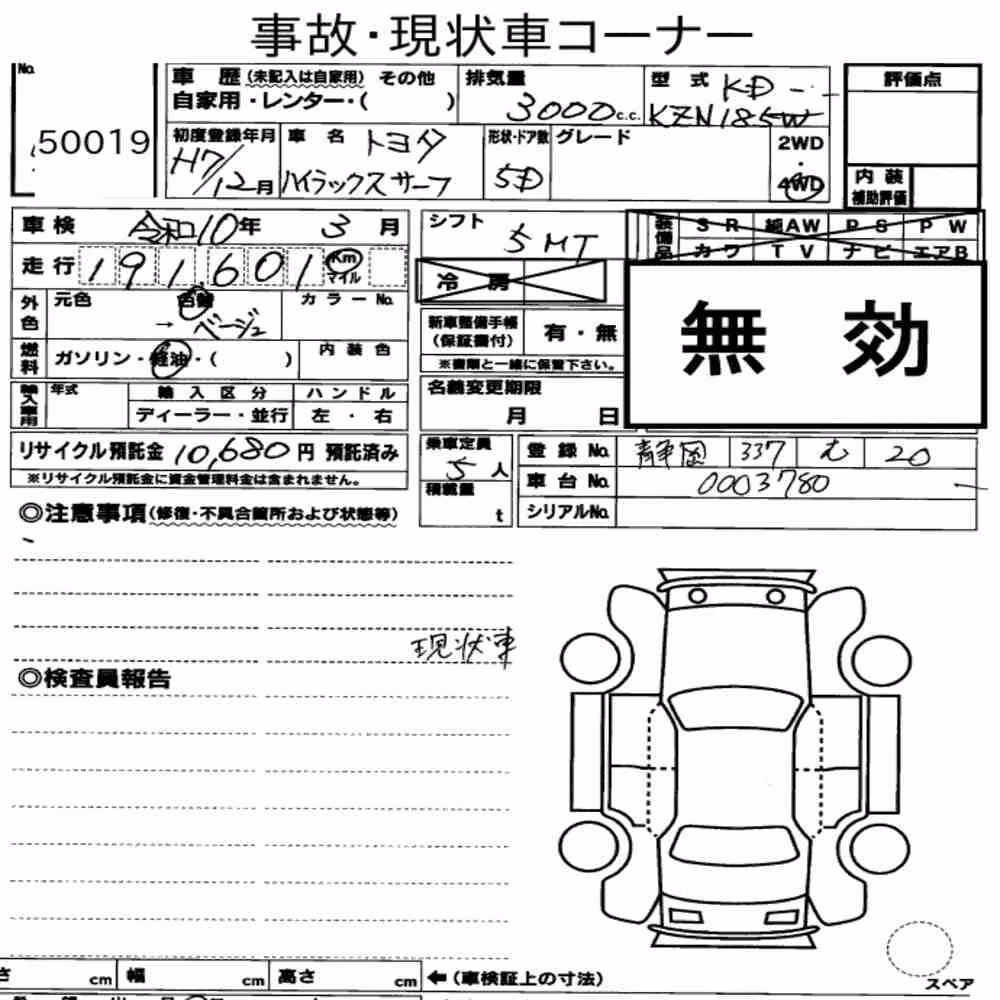 事故・現状車コーナー
No. 50019
車歴 (未記入は自家用) その他
自家用・レンター・( )
排気量 3000c.c.
型式 KD-
KZN185W
評価点
初度登録年月 H7/12月
車名 トヨタ
ハイラックスサーフ
形状・ドア数 5D
グレード
2WD
・
4WD
内装
補助評価
車検 令和10年 3月
シフト 5MT
装備品 SR 純AW PS PW
カワ TV ナビ エアB
走行 191,601 Km
マイル
冷房
無効
外色 元色 色替 カラーNo.
→ ベージュ
新車整備手帳
(保証書付) 有・無
※書類と一緒に保管下さい。
燃料 ガソリン・軽油・( ) 内装色
輸入車用 年式 輸入区分 ハンドル
ディーラー・並行 左・右
名義変更期限
月 日
リサイクル預託金 10,680円 預託済み
※リサイクル預託金に資金管理料金は含まれません。
乗車定員 5人
積載量 t
登録No. 静岡 337 む 20
車台No. 0003780
シリアルNo.
◎注意事項(修復・不具合箇所および状態等)
現状車
◎検査員報告
さ cm 幅 cm 高さ cm ←(車検証上の寸法)
スペア